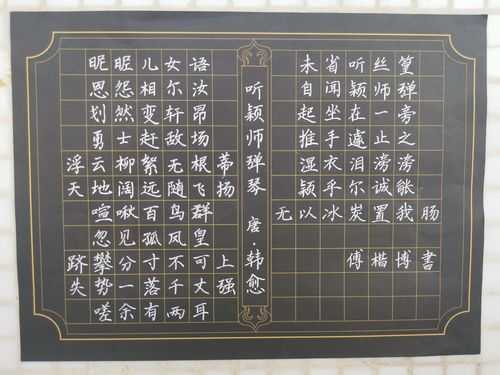 昵昵儿女语
恩怨相尔汝
划然变轩昂
勇士赴敌场
浮云柳絮无根蒂
天地阔远随飞扬
喧啾百鸟群
忽见孤凤皇
跻攀分寸不可上
失势一落千丈强
嗟余有两耳
听颖师弹琴 唐·韩愈
未省听丝篁
自闻颖师弹
起坐在一旁
推手遽止之
湿衣泪滂滂
颖乎尔诚能
无以冰炭置我肠
傅楷博書